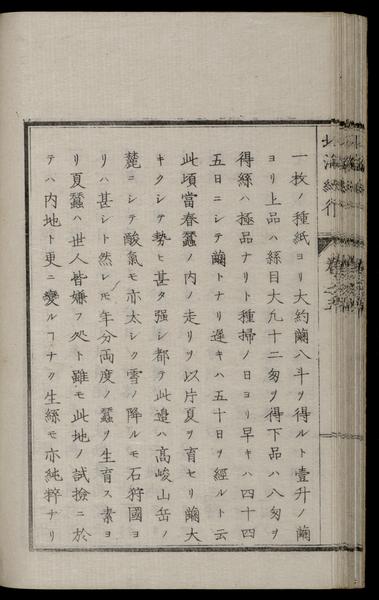 一枚ノ種紙ヨリ大約繭八斗ヲ得ルト壹升ノ繭
ヨリ上品ハ絲目大九十二匁ヲ得下品ハ八匁ヲ
得絲ハ極品ナリト種掃ノ日ヨリ早キハ四十四
五日ニシテ繭トナリ遅キハ五十日ヲ經ルト云
此頃當春蠶ノ内ノ走リヲ以片夏ヲ育セリ繭大
キクシテ勢ヒ甚タ强シ都テ此邉ハ髙峻山岳ノ
麓ニシテ酸氣モ亦太シク雪ノ降ルモ石狩國ヨ
リハ甚シト然レ𪜈年分両度ノ蠶ヲ生育ス素ヨ
リ夏蠶ハ世人皆嫌フ処ト雖モ此地ノ試撿ニ於
テハ内地ト更ニ變ルヿナク生絲モ亦純粹ナリ
北海紀行